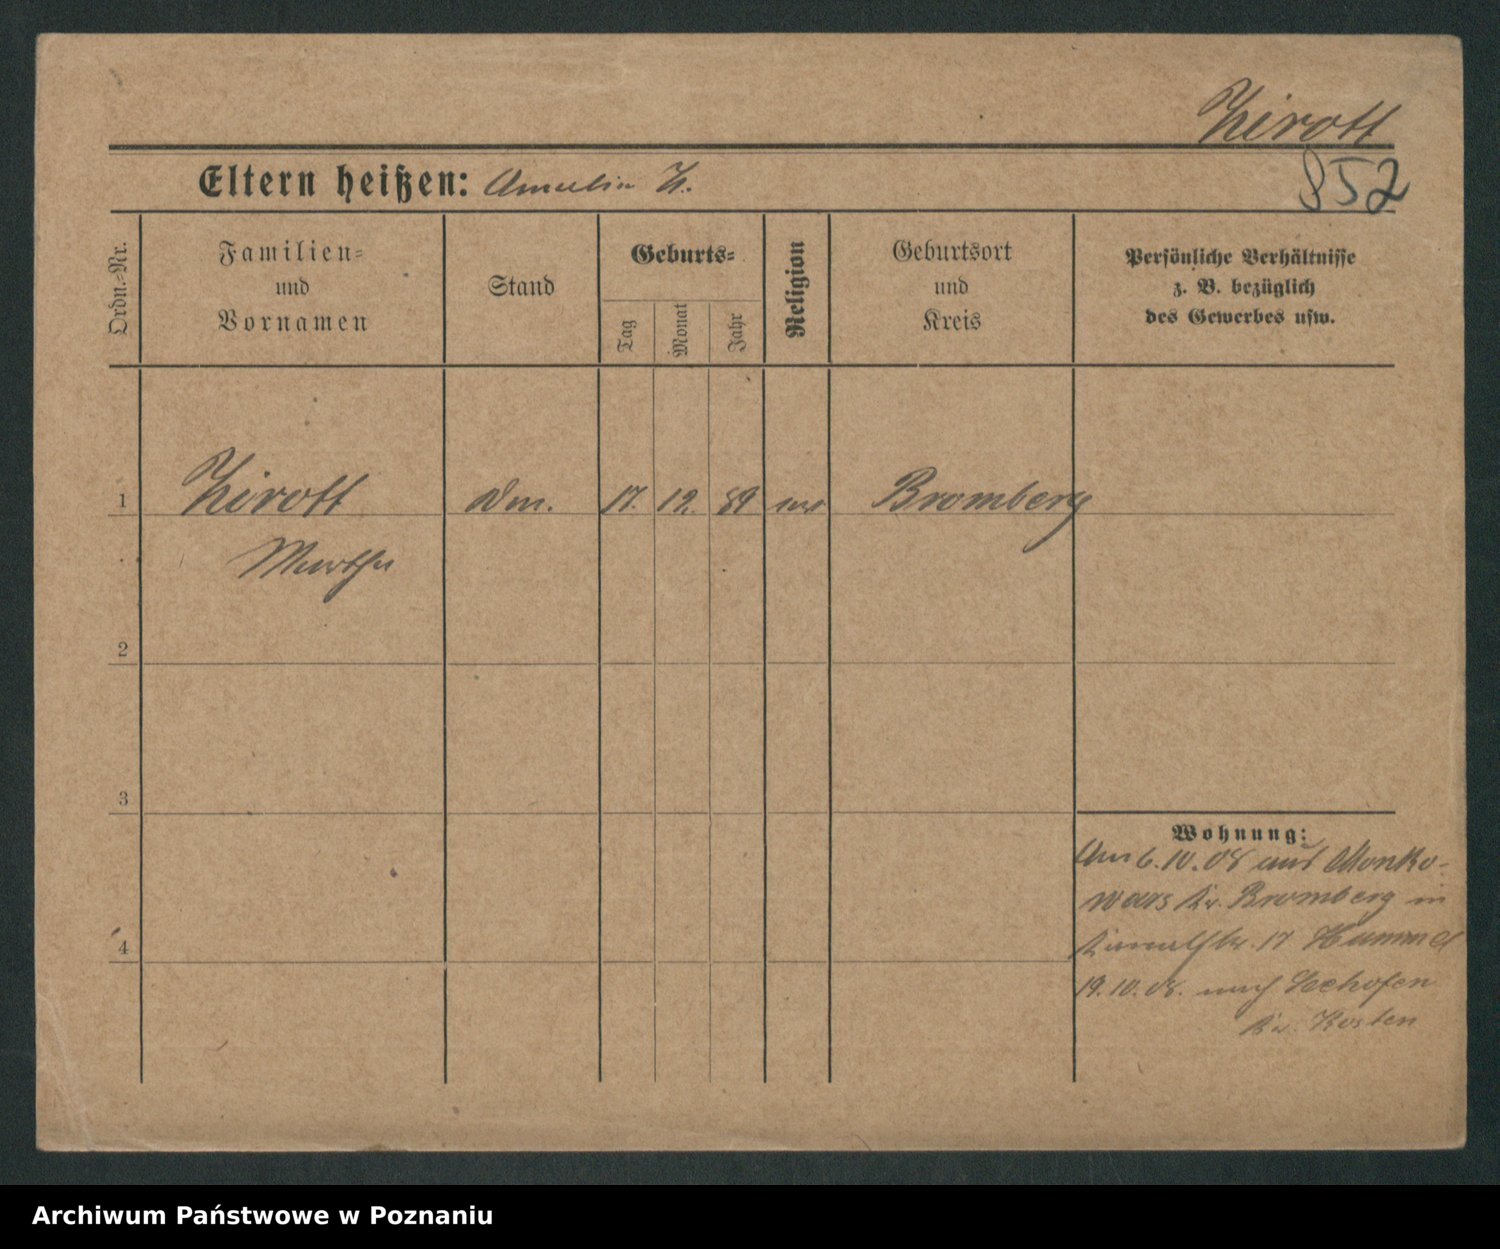 Zirott
852
Eltern heißen: Amalie Z.
Ordn.-Nr.
Familien=
und
Vornamen
Stand
Geburts=
Tag
Monat
Jahr
Religion
Geburtsort
und
Kreis
Persönliche Verhältnisse
z. B. bezüglich
des Gewerbes usw.
1 Zirott 17. 12. 89 Bromberg
Martha
2
3
4
Wohnung:
Am 6.10.08 aus Monko-
wars Kr. Bromberg in
17 Hummel
19.10.08. nach Seehofen
Kr. Kosten
Archiwum Państwowe w Poznaniu